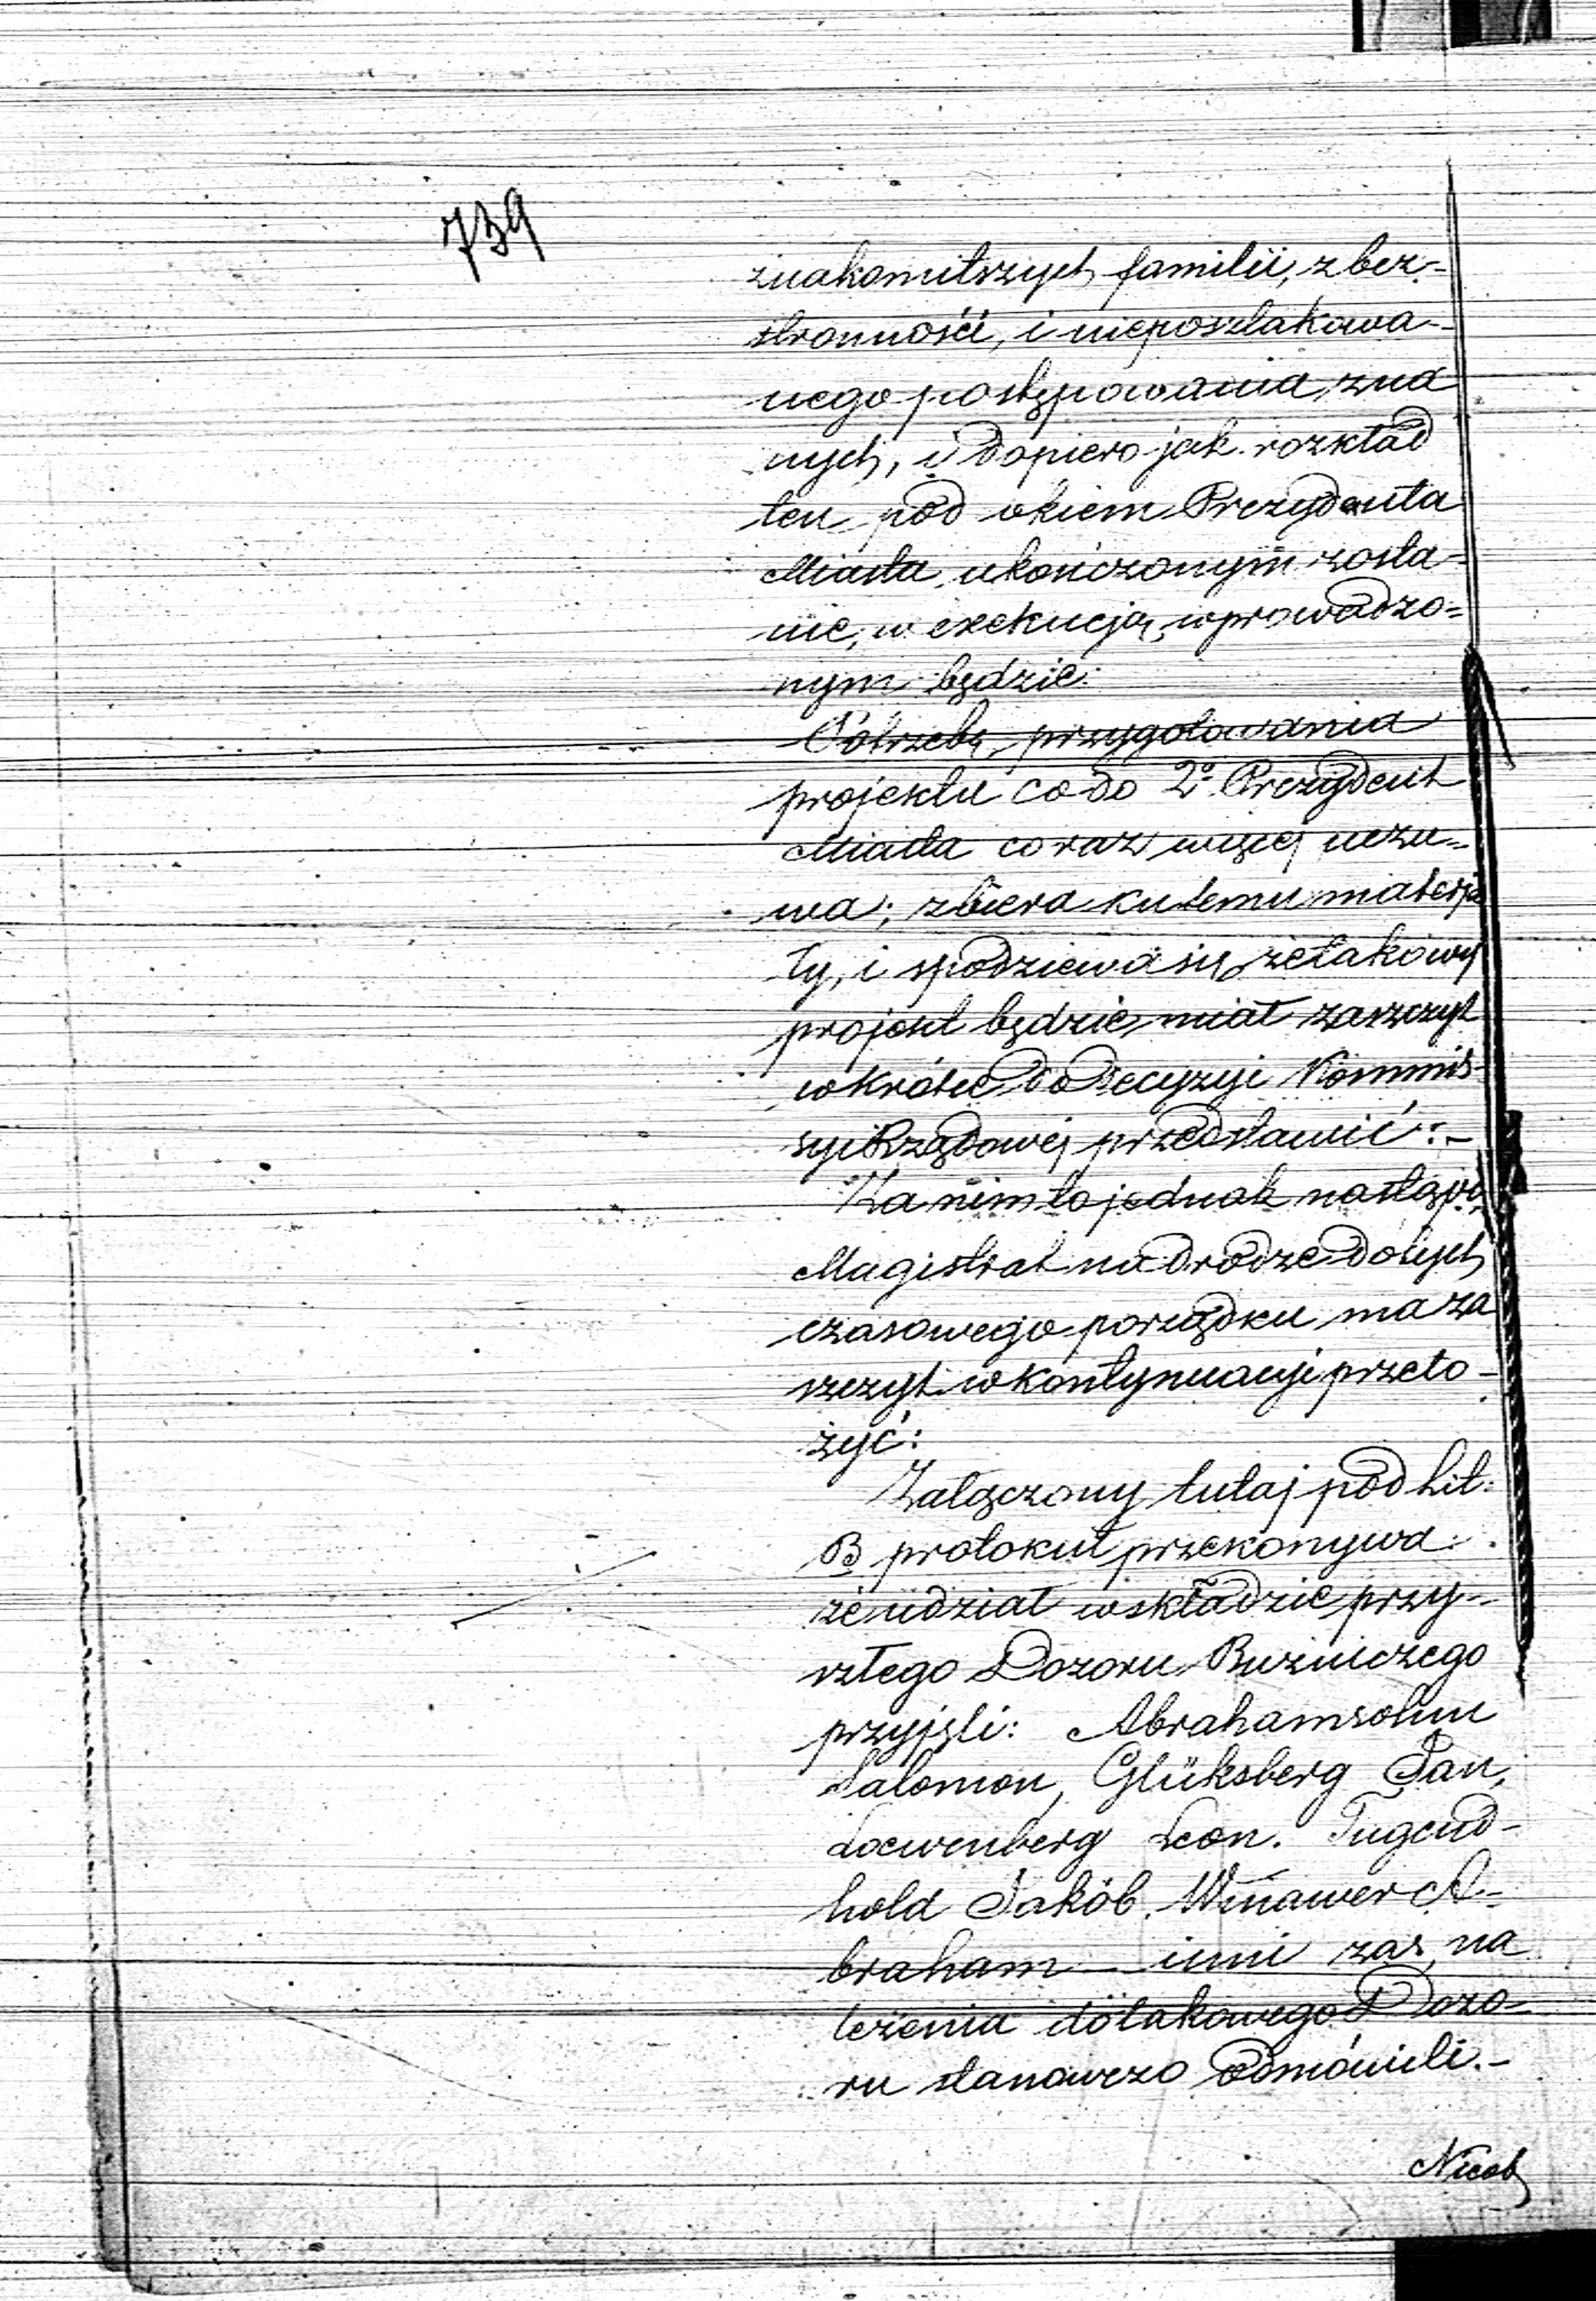 739
znakomitszych familii, z bez-
stronności, i nieposzlakowa-
nego postępowania zna
nych, i dopiero jak rozkład
ten pod okiem Prezydenta
Miasta ukończonym zosta-
nie, w exekucją wprowadzo=
nym będzie.
Potrzebę przygotowania
projektu co do 2º Prezydent
Miasta coraz więcej uczu-
wa; zbiera ku temu materja
ły, i spodziewa się że takowy
projekt będzie miał zaszczyt
wkrótce do decyzyi Kommis-
syi Rządowej przedstawić:-
Zanim to jednak nastąpi,
Magistrat na drodze dotych
czasowego porządku ma za
szczyt w kontynuacyi przeło-
żyć:
Załączony tutaj pod Lit:
B protokuł przekonywa
że udział w składzie przy-
szłego Dozoru Bużniczego
przyjęli: Abrahamsohn
Salomon, Glüksberg Jan,
Loewenberg Leon. Tugend-
hold Jakób. Winawer A-
braham inni zaś na
leżenia do takowego Dozo-
ru stanowczo odmówili.-
Nieob